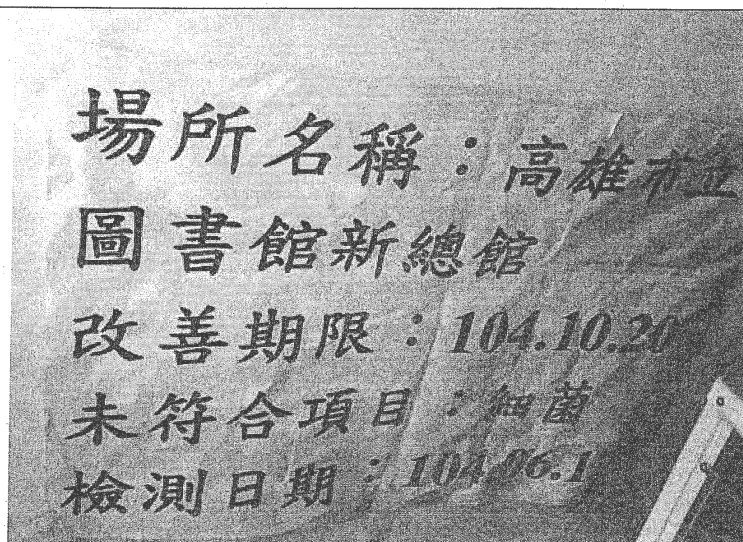 場所名稱：高雄市立
圖書館新總館
改善期限：104.10.20
未符合項目：細菌
檢測日期：104.06.1